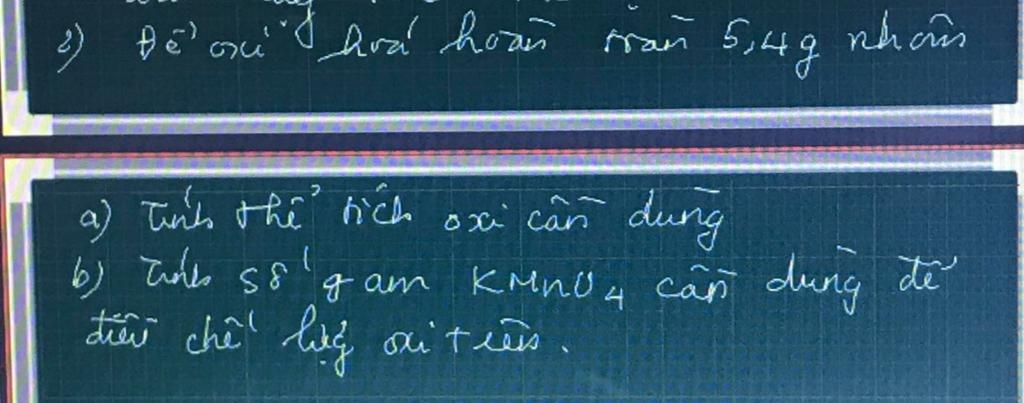 2) Để oxi hoá hoàn toàn 5,4g nhôm
a) Tính thể tích oxi cần dùng
b) Tính số gam KMnO4 cần dùng để
điều chế lượng oxi trên.